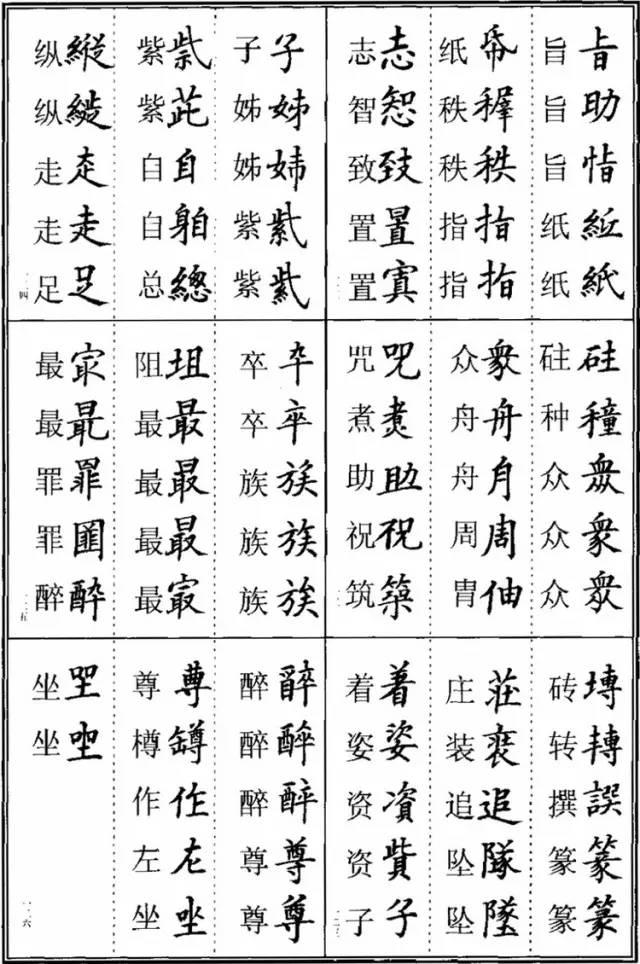 旨 旨 旨助 旨恉 纸 纸紙
纸帋 秩稺 秩秩 指指 指指
志志 智 致致 置置 置寘
砫砫 种穜 众衆 众衆 众衆
众衆 舟舟 舟月 周周 胄伷
咒咒 煮煑 助助 祝祝 筑築
砖塼 转轉 撰譔 篆篆 篆篆
庄莊 装 追追 坠隊 坠墜
着着 姿姿 资資 资貲 子子
子子 姊姊 姊姉 紫紫 紫紫
紫紫 紫茈 自自 自 总總
纵縱 纵 走 走走 足足
卒卆 卒卒 族族 族族 族族
阻坥 最最 最最 最最 最㝡
最㝡 最最 罪罪 罪 醉酔
醉 醉醉 醉醉 尊尊 尊尊
尊尊 樽罇 作作 左左 坐坐
坐坐 坐坐